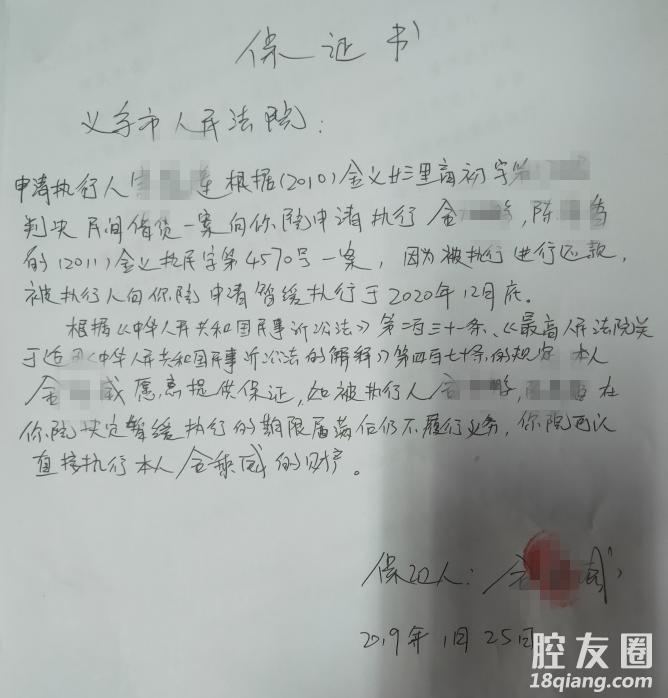 保证书
义乌市人民法院:
申请执行人 莲根据(2010)金义廿三里商初字第
判决民间借贷一案向你院申请执行金 ,陈
的(2011)金义执民字第4570号一案,因为被执行进行还款,
被执行人向你院申请暂缓执行于2020年12月底。
根据《中华人民共和国民事诉讼法》第二百三十一条、《最高人民法院关
于适用《中华人民共和国民事诉讼法的解释》第四百七十条,的规定 本人
金 威愿意提供保证,如被执行人金 , 在
你院决定暂缓执行的期限届满后仍不履行义务,你院可以
直接执行本人金 威的财产。
保证人:金 威
2019年1月25日
腔友圈
18qiang.com